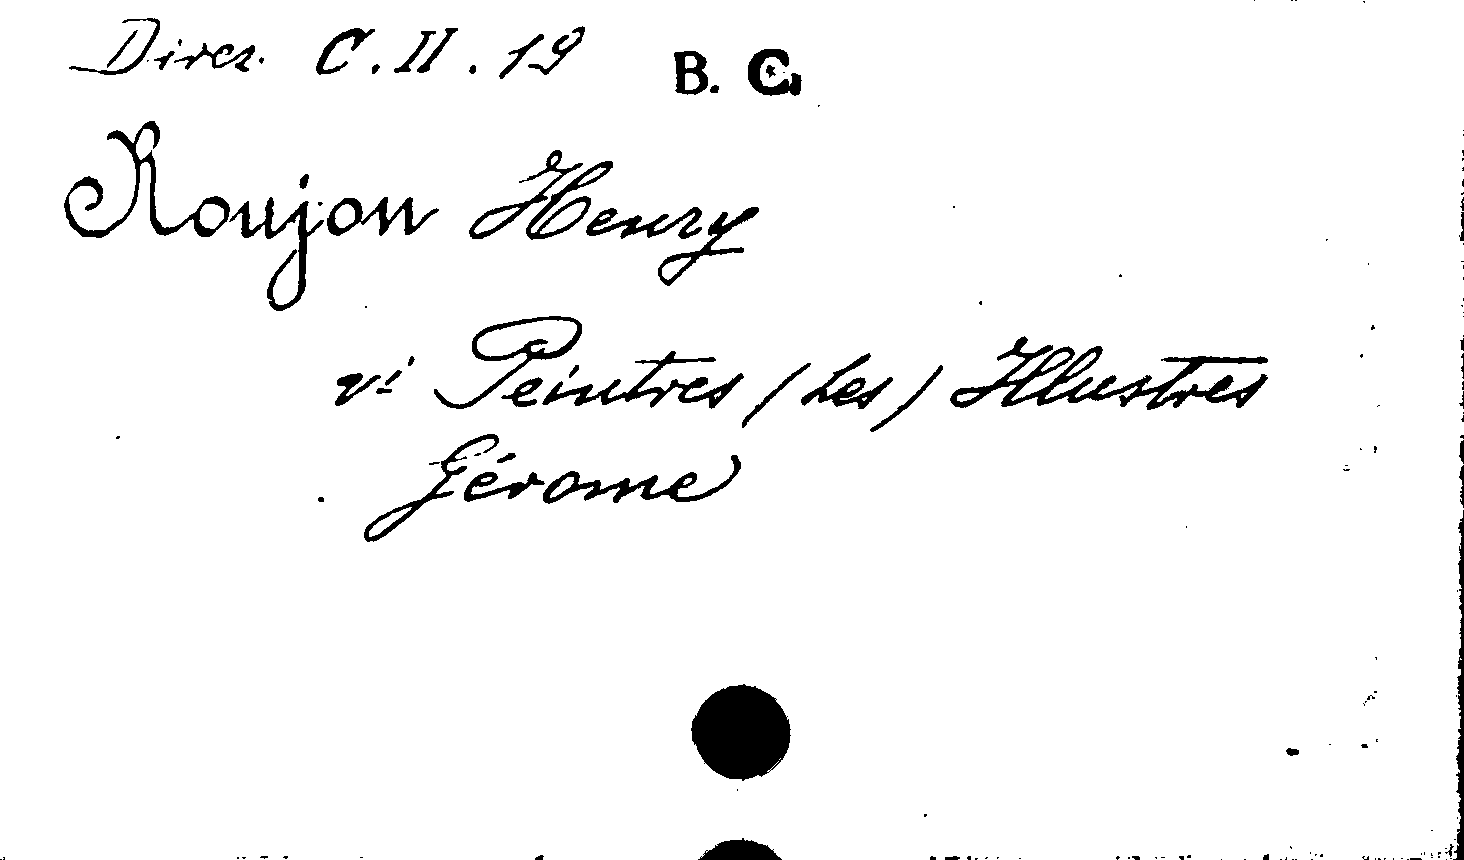 Direz. C.II.19 B. C.
Roujon Henry
vi Peintres (Les) Illustres
Gérome